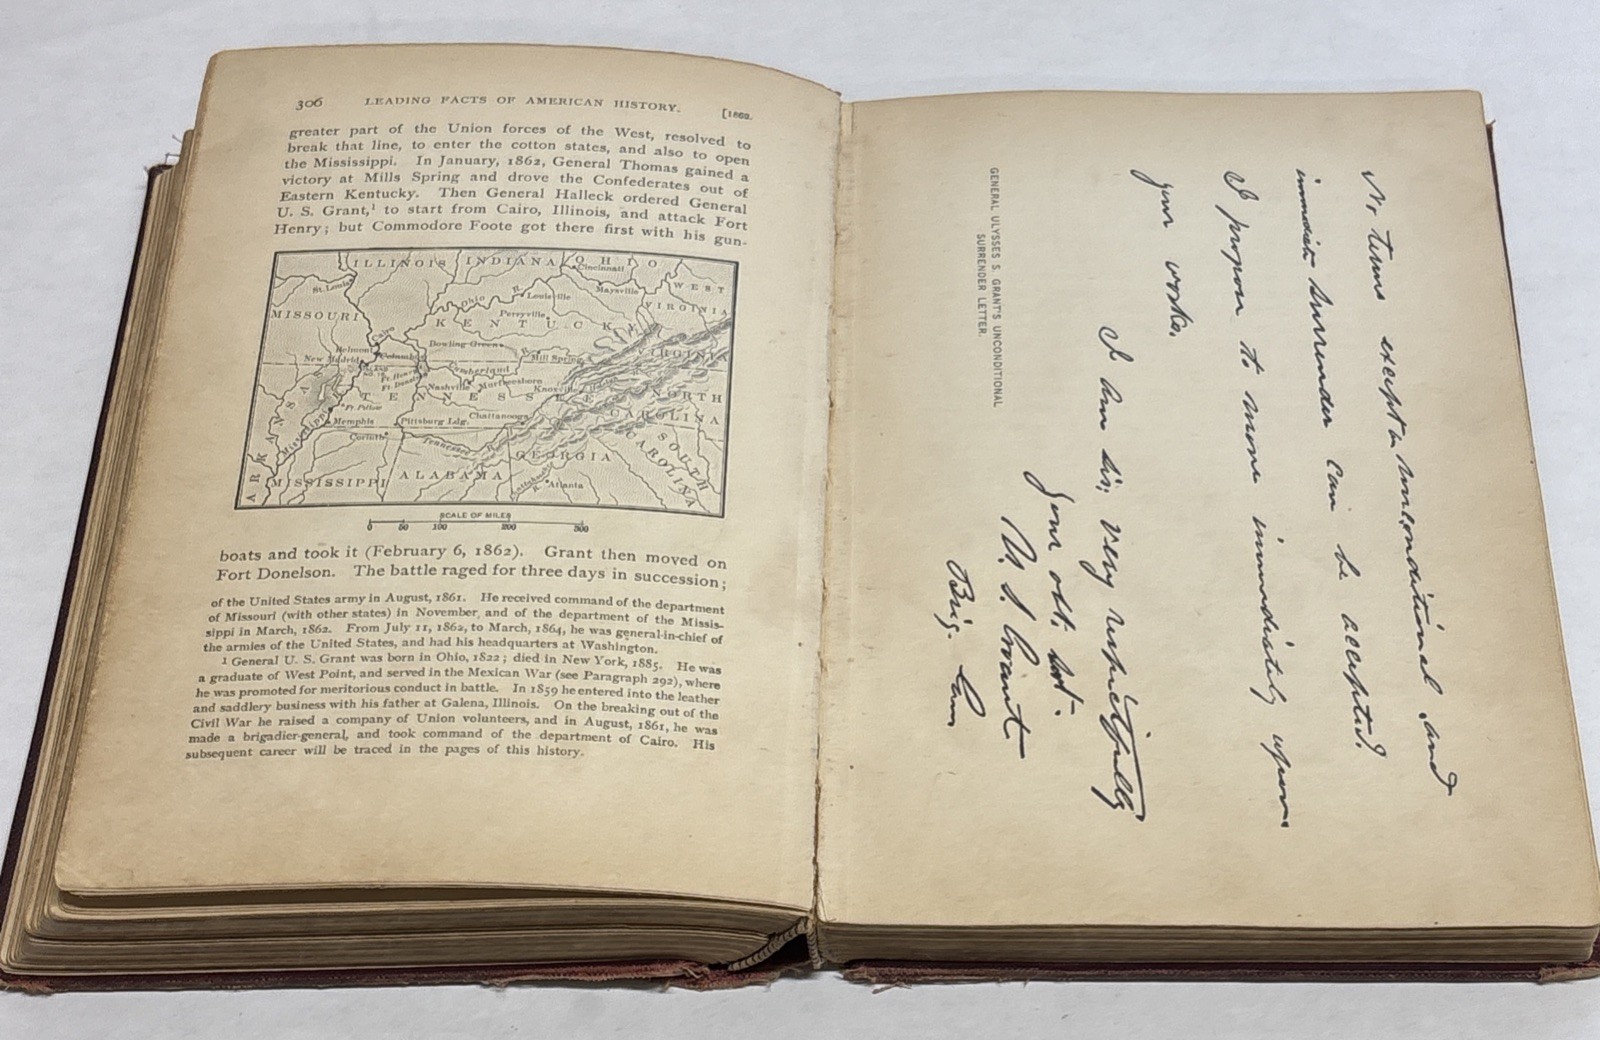 306 LEADING FACTS OF AMERICAN HISTORY. [1862.
greater part of the Union forces of the West, resolved to
break that line, to enter the cotton states, and also to open
the Mississippi. In January, 1862, General Thomas gained a
victory at Mills Spring and drove the Confederates out of
Eastern Kentucky. Then General Halleck ordered General
U. S. Grant,¹ to start from Cairo, Illinois, and attack Fort
Henry; but Commodore Foote got there first with his gun-
ILLINOIS INDIANA OHIO
Cincinnati
St. Louis
Maysville
WEST
VIRGINIA
Ohio R.
Louisville
MISSOURI
Perryville
KENTUCKY
Cairo
Belmont
Columbus
Bowling Green
Mill Spring
VIRGINIA
New Madrid
ISLAND
NO. 10
Ft. Henry
Ft. Donelson
Cumberland
Nashville
Murfreesboro
Knoxville
TENNESSEE
NORTH
CAROLINA
Ft. Pillow
Chattanooga
Memphis
Pittsburg Ldg.
Mississippi
Corinth
Tennessee
GEORGIA
SOUTH
CAROLINA
ARKANSAS
MISSISSIPPI
ALABAMA
R.
Atlanta
SCALE OF MILES
0 50 100 200 300
boats and took it (February 6, 1862). Grant then moved on
Fort Donelson. The battle raged for three days in succession;
of the United States army in August, 1861. He received command of the department
of Missouri (with other states) in November, and of the department of the Missis-
sippi in March, 1862. From July 11, 1862, to March, 1864, he was general-in-chief of
the armies of the United States, and had his headquarters at Washington.
¹ General U. S. Grant was born in Ohio, 1822; died in New York, 1885. He was
a graduate of West Point, and served in the Mexican War (see Paragraph 292), where
he was promoted for meritorious conduct in battle. In 1859 he entered into the leather
and saddlery business with his father at Galena, Illinois. On the breaking out of the
Civil War he raised a company of Union volunteers, and in August, 1861, he was
made a brigadier-general, and took command of the department of Cairo. His
subsequent career will be traced in the pages of this history.
No terms except an unconditional and
immediate surrender can be accepted.
I propose to move immediately upon
your works.
I am sir; very respectfully
your obt. svt.
U. S. Grant
Brig. Gen.
GENERAL ULYSSES S. GRANT'S UNCONDITIONAL
SURRENDER LETTER.